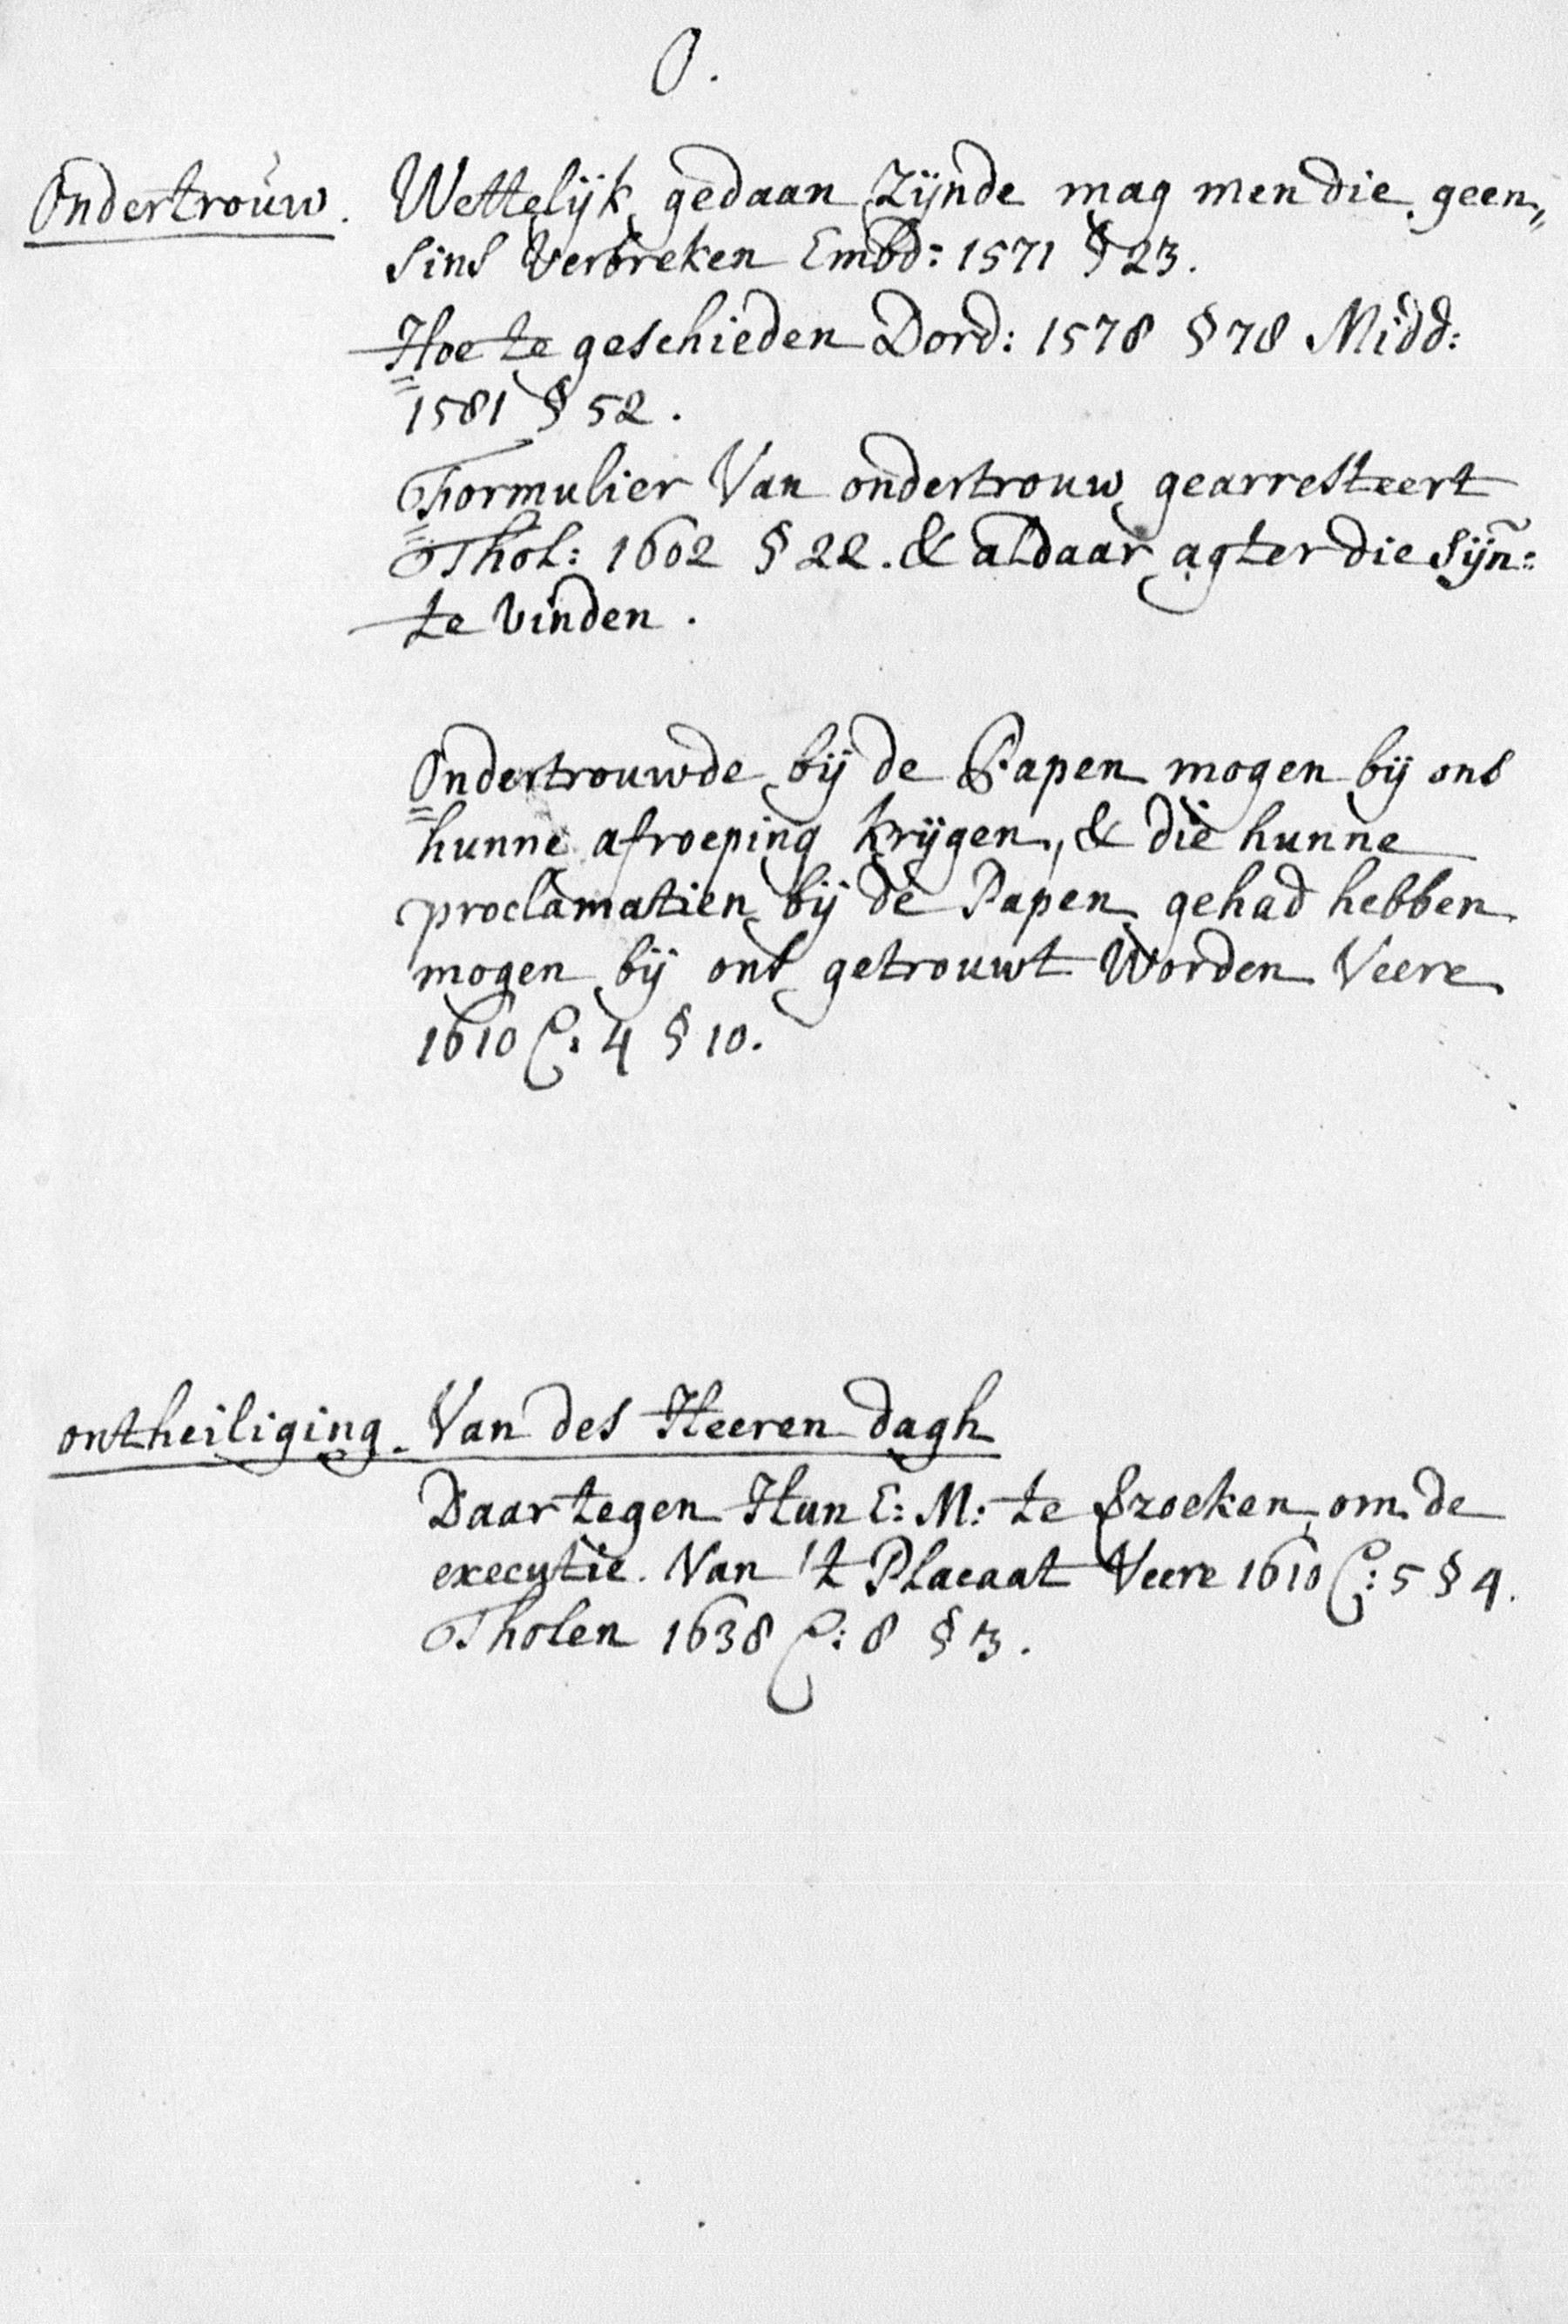 O.
Ondertrouw. Wettelijk gedaan Zijnde mag men die geen„
sins verbreken Embd: 1571 § 23.
Hoe te geschieden Dord: 1578 § 78 Midd:
1581 § 52.
Formulier Van ondertrouw gearresteert
Thol: 1602 § 22. & aldaar agter die Sijn:
te vinden.
Ondertrouwde bij de Papen mogen bij ons
hunne afroeping krijgen, & die hunne
proclamatien bij de Papen gehad hebben
mogen bij ons getrouwt Worden Veere
1610 C: 4 § 10.
ontheiliging. Van des Heeren dagh
Daar tegen Hun E: M: te om de
executie Van 't Placaat Veere 1610 C: 5 § 4.
Tholen 1638 C: 8 § 3.